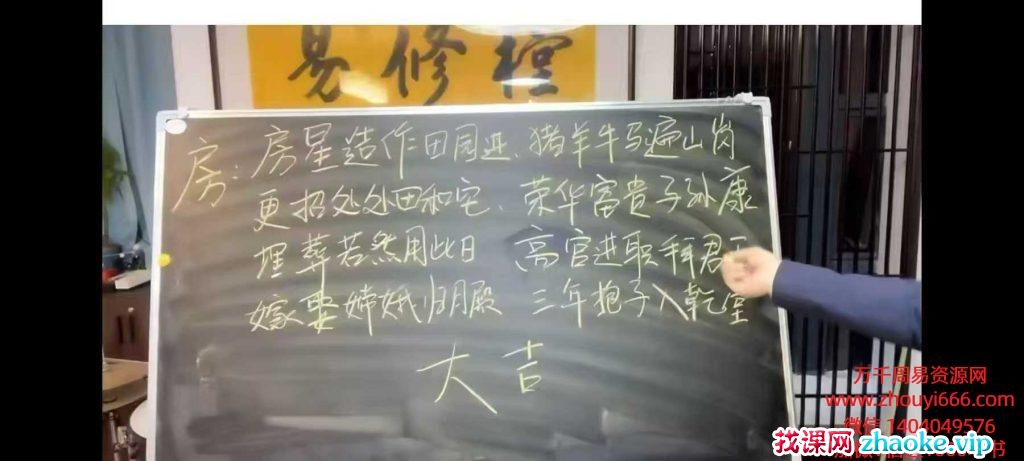 易修桓
房：房星造作田园进、猪羊牛马遍山岗
更招处处田和宅、荣华富贵子孙康
埋葬若然用此日 高官进职拜君王
嫁娶嫦娥归月殿 三年抱子入乾堂
大吉
万千周易资源网
www.zhouyi666.com
微信 1404049576
找课网 zhaoke.vip